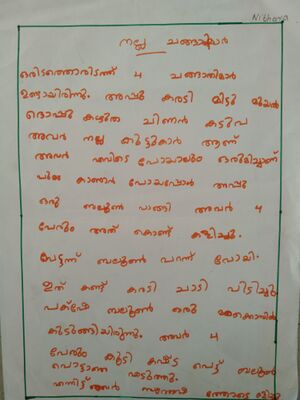 Nithara
നല്ല ചങ്ങാതിമാർ
ഒരിടത്തൊരിടത്ത് 4 ചങ്ങാതിമാർ
ഉണ്ടായിരിന്നു. അപ്പു കരടി മിട്ടു മുയൽ
കടുവ
അവർ നല്ല കൂട്ടുകാർ ആണ്
അവർ എവിടെ പോയാലും ഒരുമിച്ചാണ്
കാണാൻ പോയപ്പോൾ അപ്പു
ഒരു ബലൂൺ വാങ്ങി അവർ 4
പേരും അത് കൊണ്ട് കളിച്ചു.
പെട്ടന്ന് ബലൂൺ പറന്ന് പോയി.
ഇത് കണ്ട് കരടി ചാടി പിടിച്ചു
പക്ഷേ ബലൂൺ ഒരു മരക്കൊമ്പിൽ
കുടുങ്ങിയിരുന്നു. അവർ 4
പേരും കൂടി കഷ്ട്ട പെട്ട് ബലൂൺ
പൊട്ടാതെ എടുത്തു.
എന്നിട്ട് അവർ സന്തോഷ ത്തോടെ